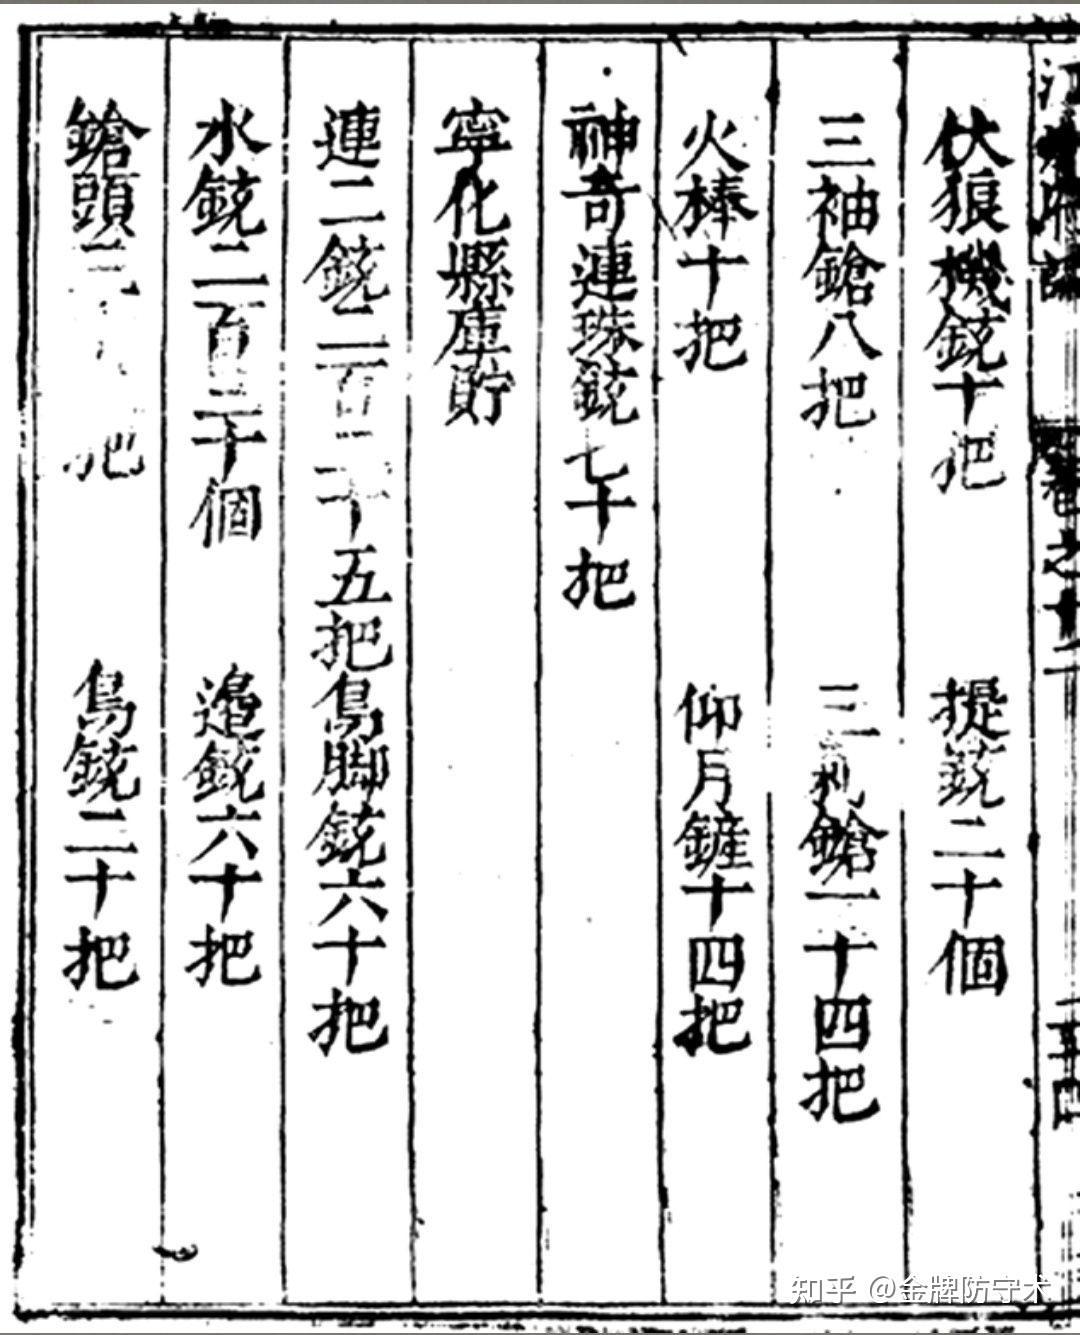 卷之十二
伏狼機銃十把 提銃二十個
三袖鎗八把 三利鎗一十四把
火棒十把 仰月鏟十四把
神奇連珠銃七十把
寧化縣庫貯
連二銃二百二十五把 鳥脚銃六十把
水銃二百三十個 邊銃六十把
鎗頭三 把 鳥銃二十把
知乎 @金牌防守术